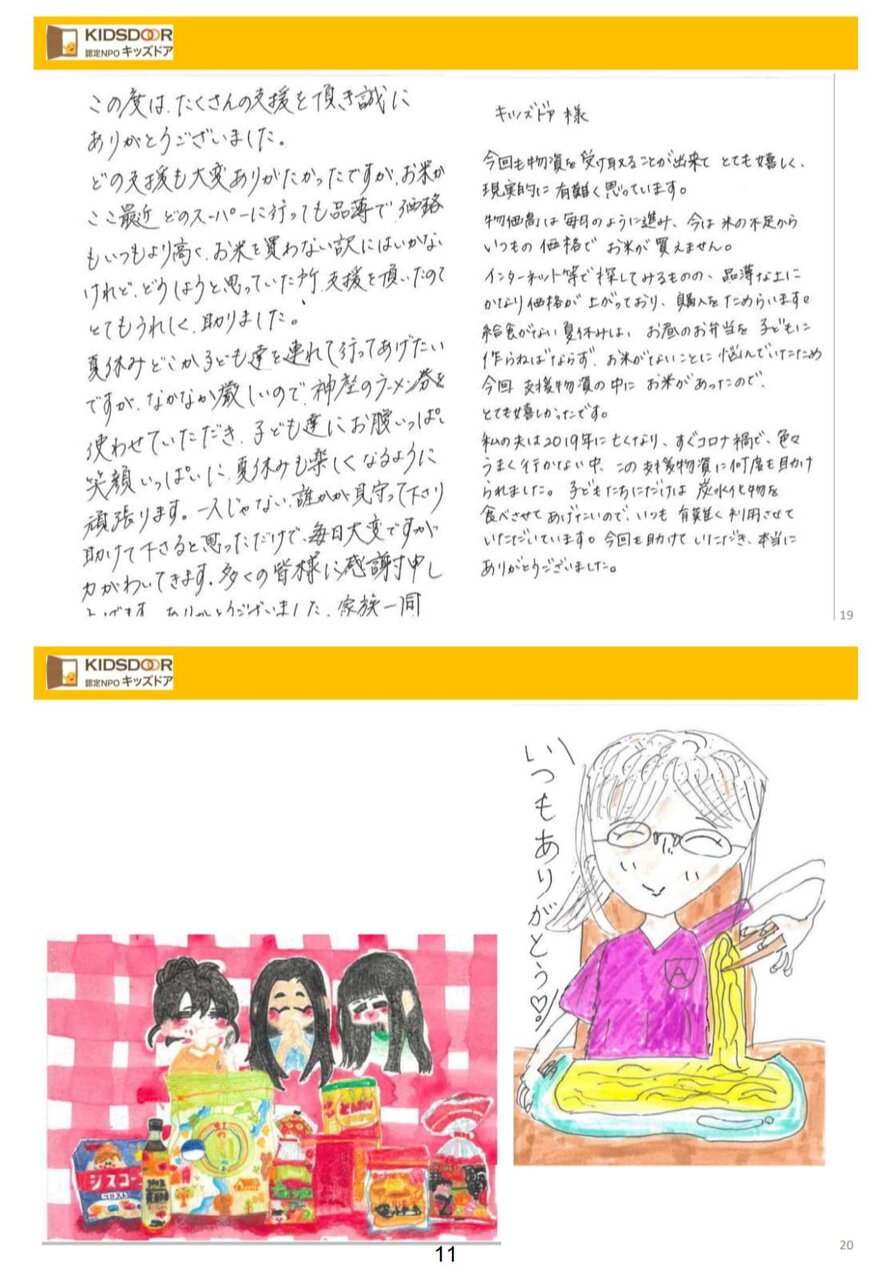 KIDSDOOR
認定NPO キッズドア
この度は、たくさんの支援を頂き誠に
ありがとうございました。
どの支援も大変ありがたかったですが、お米が
ここ最近どのスーパーに行っても品薄で、価格
もいつもより高く、お米を買わない訳にはいかない
けれど、どうしようと思っていた所、支援を頂いたので
とてもうれしく、助りました!
夏休みどこか子ども達を連れて行ってあげたい
ですが、なかなか厳しいので、神座のラーメン券を
使わせていただき、子ども達にお腹いっぱい
笑顔いっぱいに、夏休みも楽しくなるように
頑張ります。一人じゃない、誰かが見守って下さり
助けて下さると思っただけで、毎日大変ですが
力がわいてきます。多くの皆様に感謝申し
ありがとうございました。家族一同
キッズドア 様
今回も物資を受け取ることが出来て とても嬉しく、
現実的に 有難く思っています。
物価高は毎日のように進み、今は 米の不足から
いつもの 価格で お米が 買えません。
インターネット等で探してみるものの、品薄な上に
かなり価格が 上がっており、購入をためらいます。
給食がない夏休みは、お昼のお弁当を 子どもに
作らねばならず、お米がないことに 悩んでいたため
今回 支援物資の中に お米があったので、
とても嬉しかったです。
私の夫は2019年に亡くなり、すぐコロナ禍で、色々
うまく行かない中、この 支援物資に何度も助け
られました。子どもたちにだけは 炭水化物を
食べさせて あげたいので、いつも 有難く利用させて
いただいています。今回も助けて いただき、本当に
ありがとうございました。
19
KIDSDOOR
認定NPO キッズドア
いつもありがとう♡
A
シスコーン
20
11